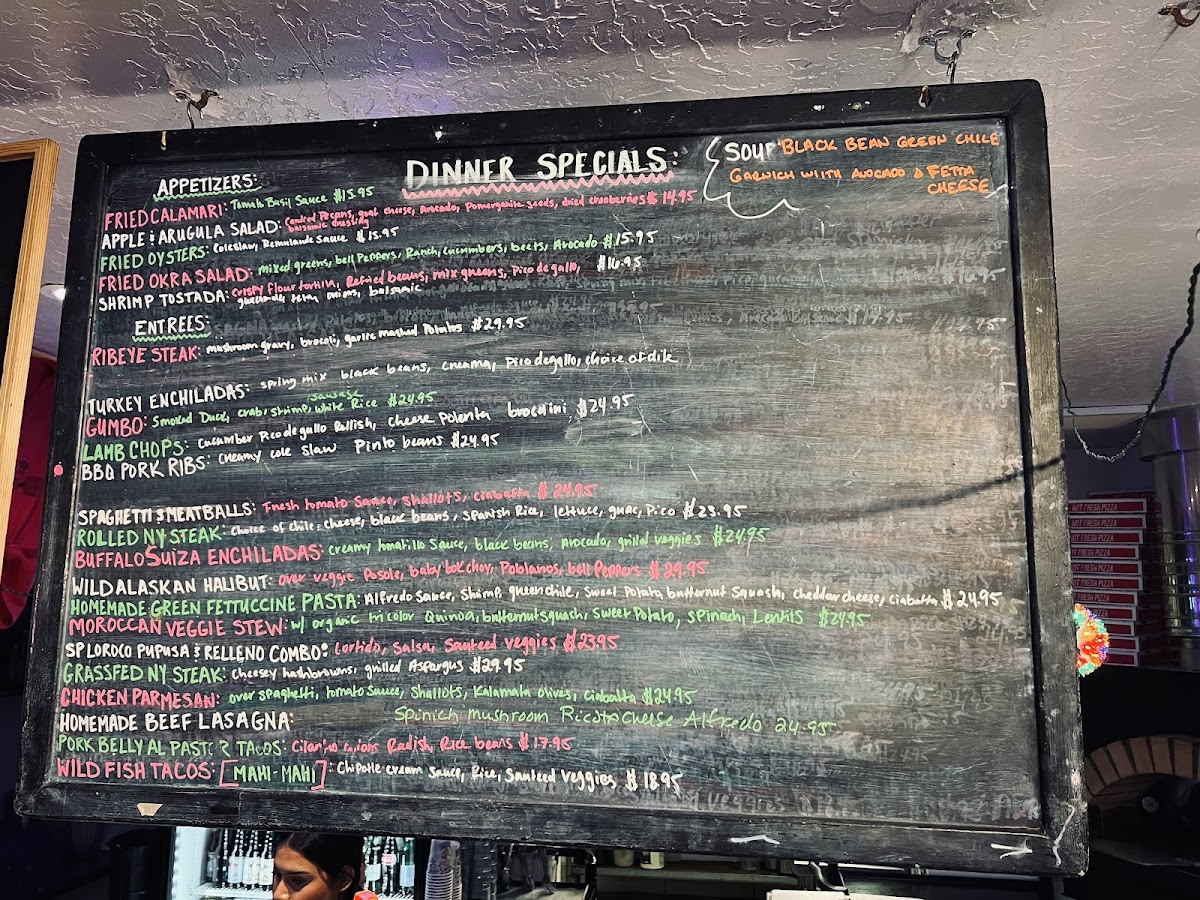 DINNER SPECIALS:
SOUP BLACK BEAN GREEN CHILE
GARNICH WITH AVOCADO & FETTA
CHEESE
APPETIZERS:
FRIED CALAMARI: Tomato Basil Sauce $15.95
APPLE & ARUGULA SALAD: Candied Pecans, goat cheese, Avocado, Pomegranite seeds, dried cranberries $14.95
balsamic dressing
FRIED OYSTERS: Coleslaw, Remulaude Sauce $15.95
FRIED OKRA SALAD: mixed greens, bell Peppers, Ranch, cucumbers, beets, Avocado $15.95
SHRIMP TOSTADA: crispy flour tortilla, Refried beans, mix greens, Pico de gallo, $16.95
onions, balsamic
ENTREES:
RIBEYE STEAK: mushroom gravy, brocoli, garlic mashed Potatos $29.95
TURKEY ENCHILADAS: spring mix black beans, creama, Pico de gallo, choice of
GUMBO: Smoked Duck, crab, shrimp, sausage white Rice $24.95
LAMB CHOPS: Cucumber Pico de gallo Rellish, cheese Polenta brocolini $24.95
BBQ PORK RIBS: creamy cole slaw Pinto beans $24.95
SPAGHETTI & MEATBALLS: Fresh tomato Sauce, shallots, ciabatta $24.95
ROLLED NY STEAK: choice of chile, cheese, black beans, spanish Rice, lettuce, guac, Pico $23.95
BUFFALO SUIZA ENCHILADAS: creamy tomatillo Sauce, black beans, Avocado, grilled veggies $24.95
WILD ALASKAN HALIBUT: over veggie Posole, baby bok choy, Poblanos, bell Peppers $29.95
HOMEMADE GREEN FETTUCCINE PASTA: Alfredo Sauce, Shrimp, green chile, Sweet Potato, butternut Squash, cheddar cheese, ciabatta $24.95
MOROCCAN VEGGIE STEW: w/ organic tricolor Quinoa, butternut squash, Sweet Potato, spinach, Lentils $24.95
SP LOROCO PUPUSA & RELLENO COMBO: Cortido, Salsa, Sauteed veggies $23.95
GRASSFED NY STEAK: Cheesey hashbrowns, grilled Aspargus $29.95
CHICKEN PARMESAN: over spaghetti, tomato Sauce, shallots, Kalamata olives, ciabatta $24.95
HOMEMADE BEEF LASAGNA: Spinich mushroom Ricota Cheese Alfredo 24.95
PORK BELLY AL PASTOR TACOS: Cilantro onions Radish, Rice beans $17.95
WILD FISH TACOS: [MAHI-MAHI]: Chipotle cream Sauce, Rice, Sauteed Veggies, $18.95
HOT FRESH PIZZA
HOT FRESH PIZZA
HOT FRESH PIZZA
HOT FRESH PIZZA
HOT FRESH PIZZA
HOT FRESH PIZZA
HOT FRESH PIZZA
HOT FRESH PIZZA